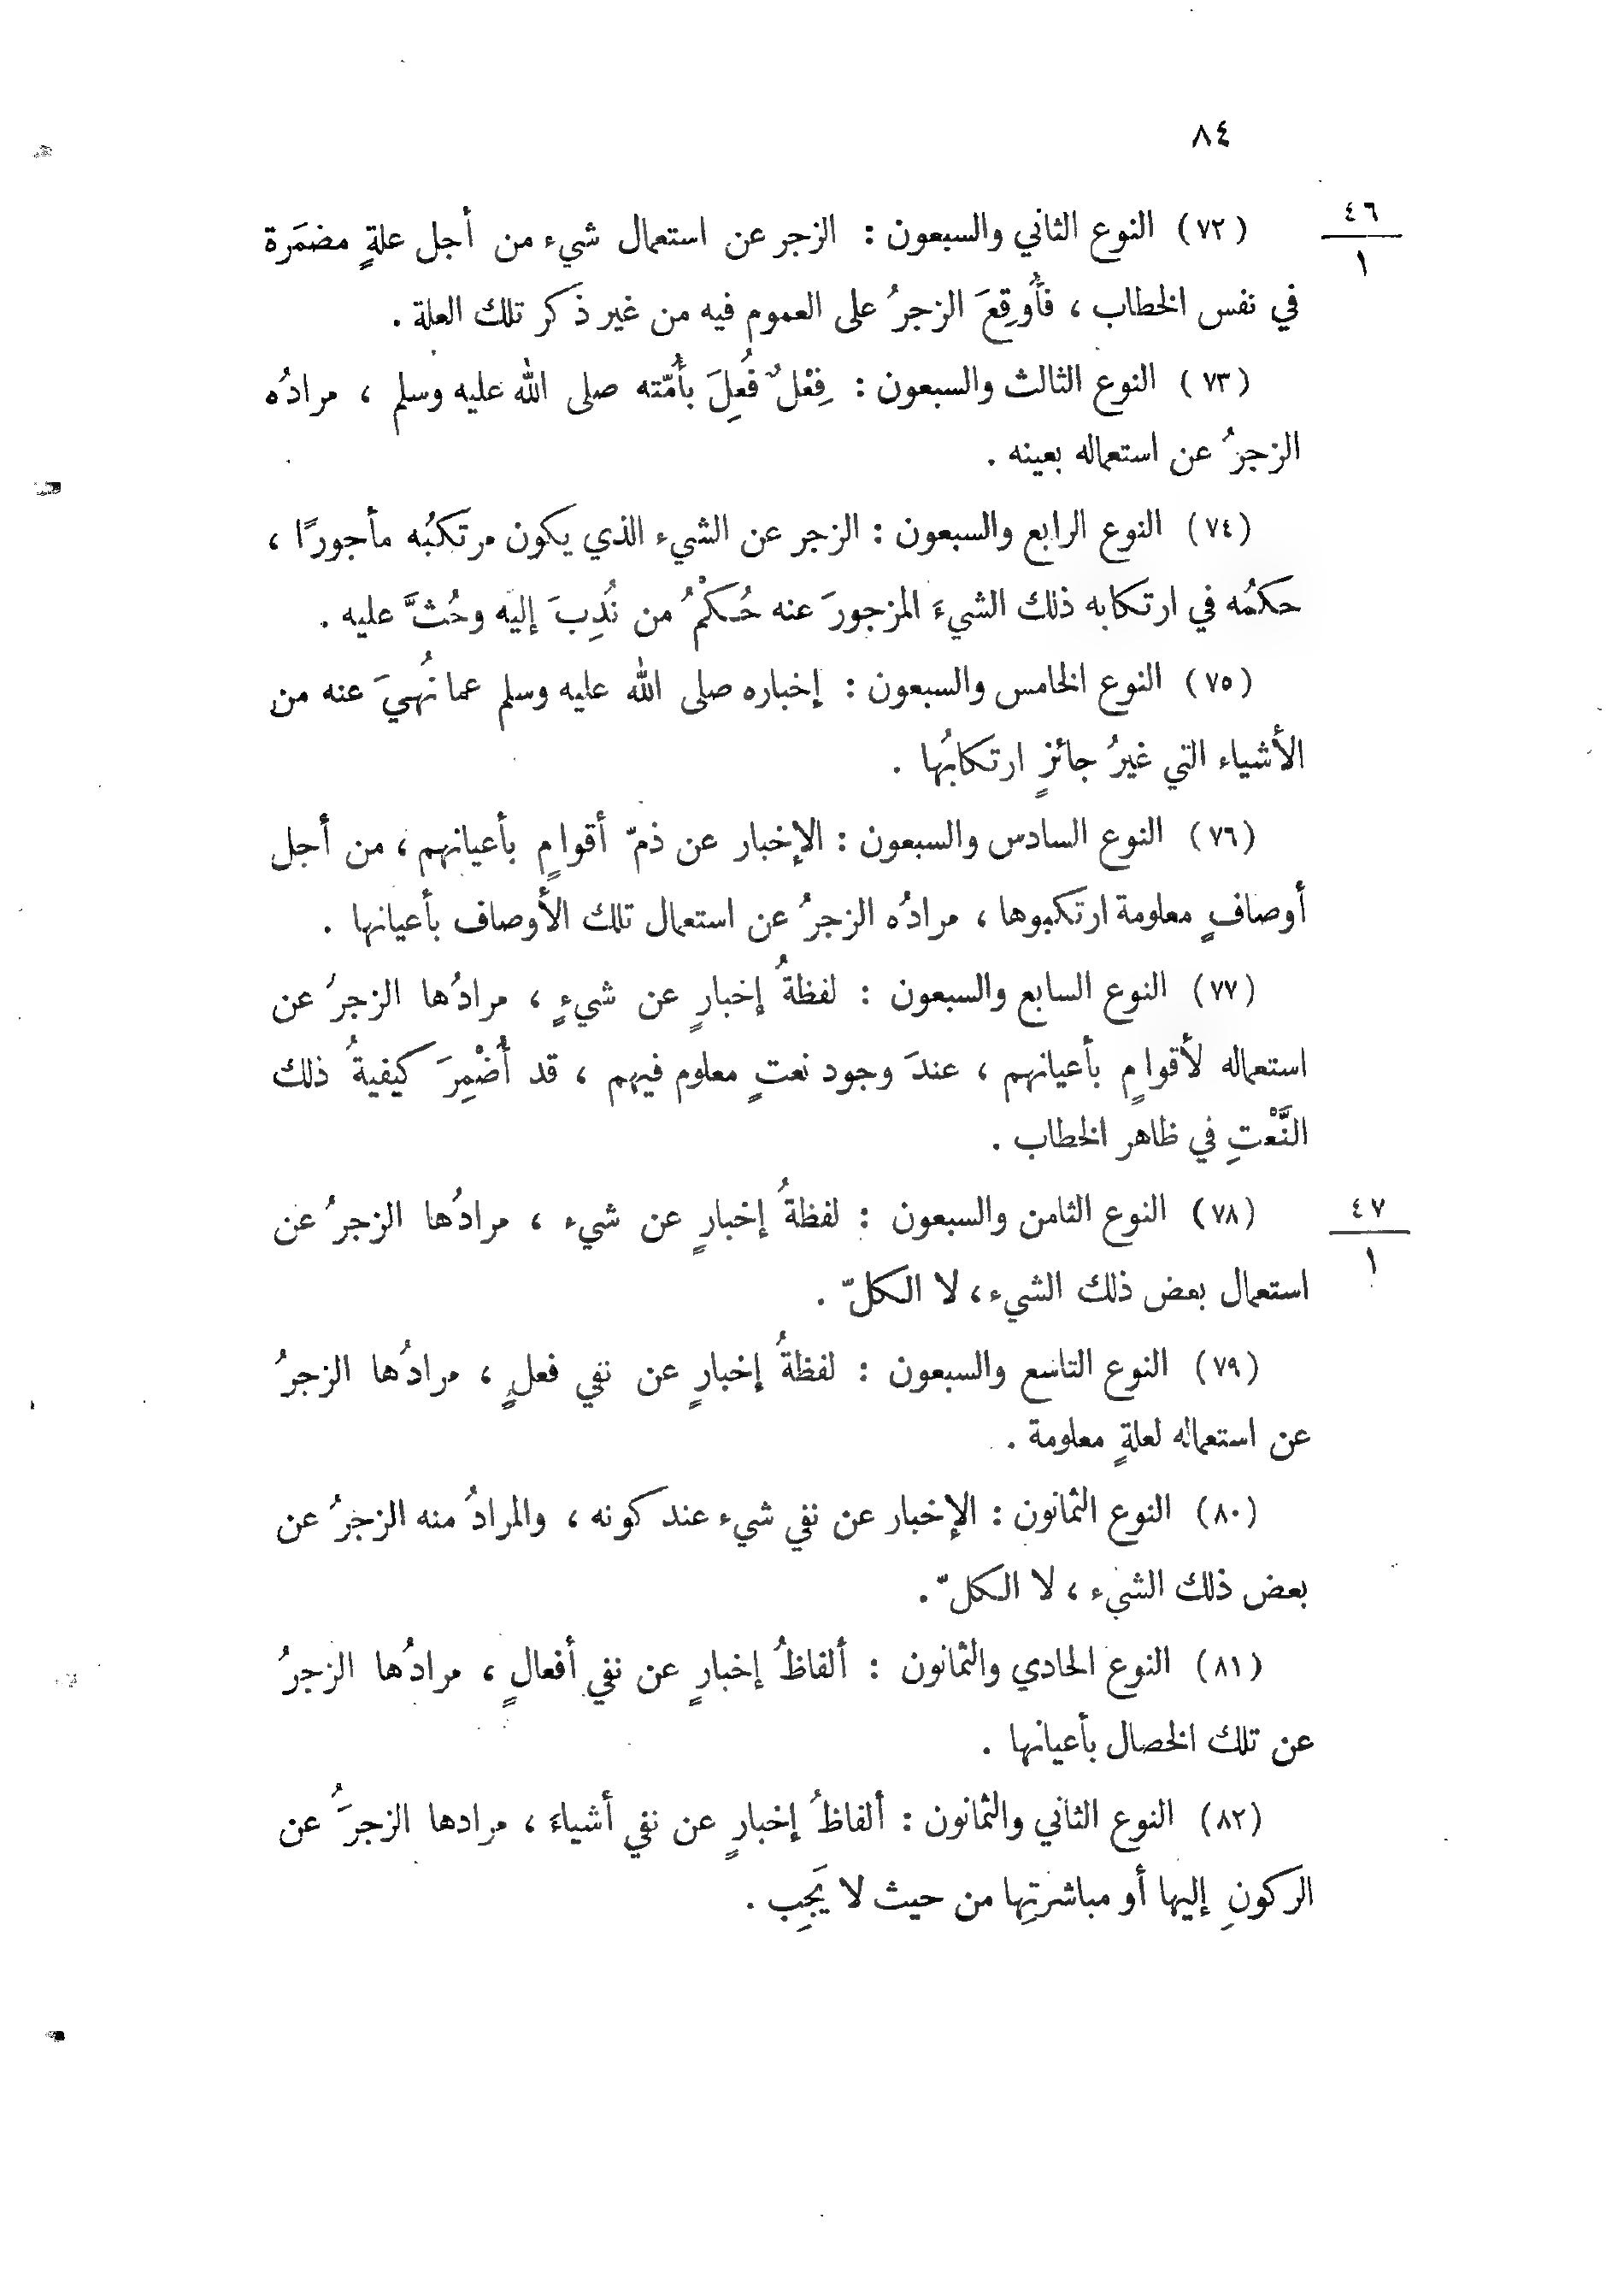 ٨٤
٤٦
١
(٧٢) النوع الثاني والسبعون : الزجر عن استعمال شيء من أجل علةٍ مضمَرة
في نفس الخطاب ، فأُوقِعَ الزجرُ على العموم فيه من غير ذكر تلك العلة .
(٧٣) النوع الثالث والسبعون : فِعْلٌ فُعِلَ بأُمّته صلى الله عليه وسلم ، مرادُه
الزجرُ عن استعماله بعينه .
(٧٤) النوع الرابع والسبعون : الزجر عن الشيء الذي يكون مرتكبُه مأجورًا ،
حكمُه في ارتكابه ذلك الشيءَ المزجورَ عنه حُكْمُ من نُدِبَ إليه وحُثَّ عليه .
(٧٥) النوع الخامس والسبعون : إخباره صلى الله عليه وسلم عما نُهيَ عنه من
الأشياء التي غيرُ جائزٍ ارتكابُها .
(٧٦) النوع السادس والسبعون : الإخبار عن ذمّ أقوامٍ بأعيانهم ، من أجل
أوصافٍ معلومة ارتكبوها ، مرادُه الزجرُ عن استعمال تلك الأوصاف بأعيانها .
(٧٧) النوع السابع والسبعون : لفظةُ إخبارٍ عن شيءٍ ، مرادُها الزجرُ عن
استعماله لأقوامٍ بأعيانهم ، عندَ وجود نعتٍ معلوم فيهم ، قد أُضْمِرَ كيفيةُ ذلك
النَّعْتِ في ظاهر الخطاب .
٤٧
١
(٧٨) النوع الثامن والسبعون : لفظةُ إخبارٍ عن شيء ، مرادُها الزجرُ عن
استعمال بعض ذلك الشيء ، لا الكلّ .
(٧٩) النوع التاسع والسبعون : لفظةُ إخبارٍ عن نفي فعلٍ ، مرادُها الزجرُ
عن استعماله لعلةٍ معلومة .
(٨٠) النوع الثمانون : الإخبار عن نفي شيء عند كونه ، والمرادُ منه الزجرُ عن
بعض ذلك الشيء ، لا الكلّ .
(٨١) النوع الحادي والثمانون : ألفاظُ إخبارٍ عن نفي أفعالٍ ، مرادُها الزجرُ
عن تلك الخصال بأعيانها .
(٨٢) النوع الثاني والثمانون : ألفاظُ إخبارٍ عن نفي أشياءَ ، مرادها الزجرَُ عن
الركونِ إليها أو مباشرتِها من حيث لا يَجِب .